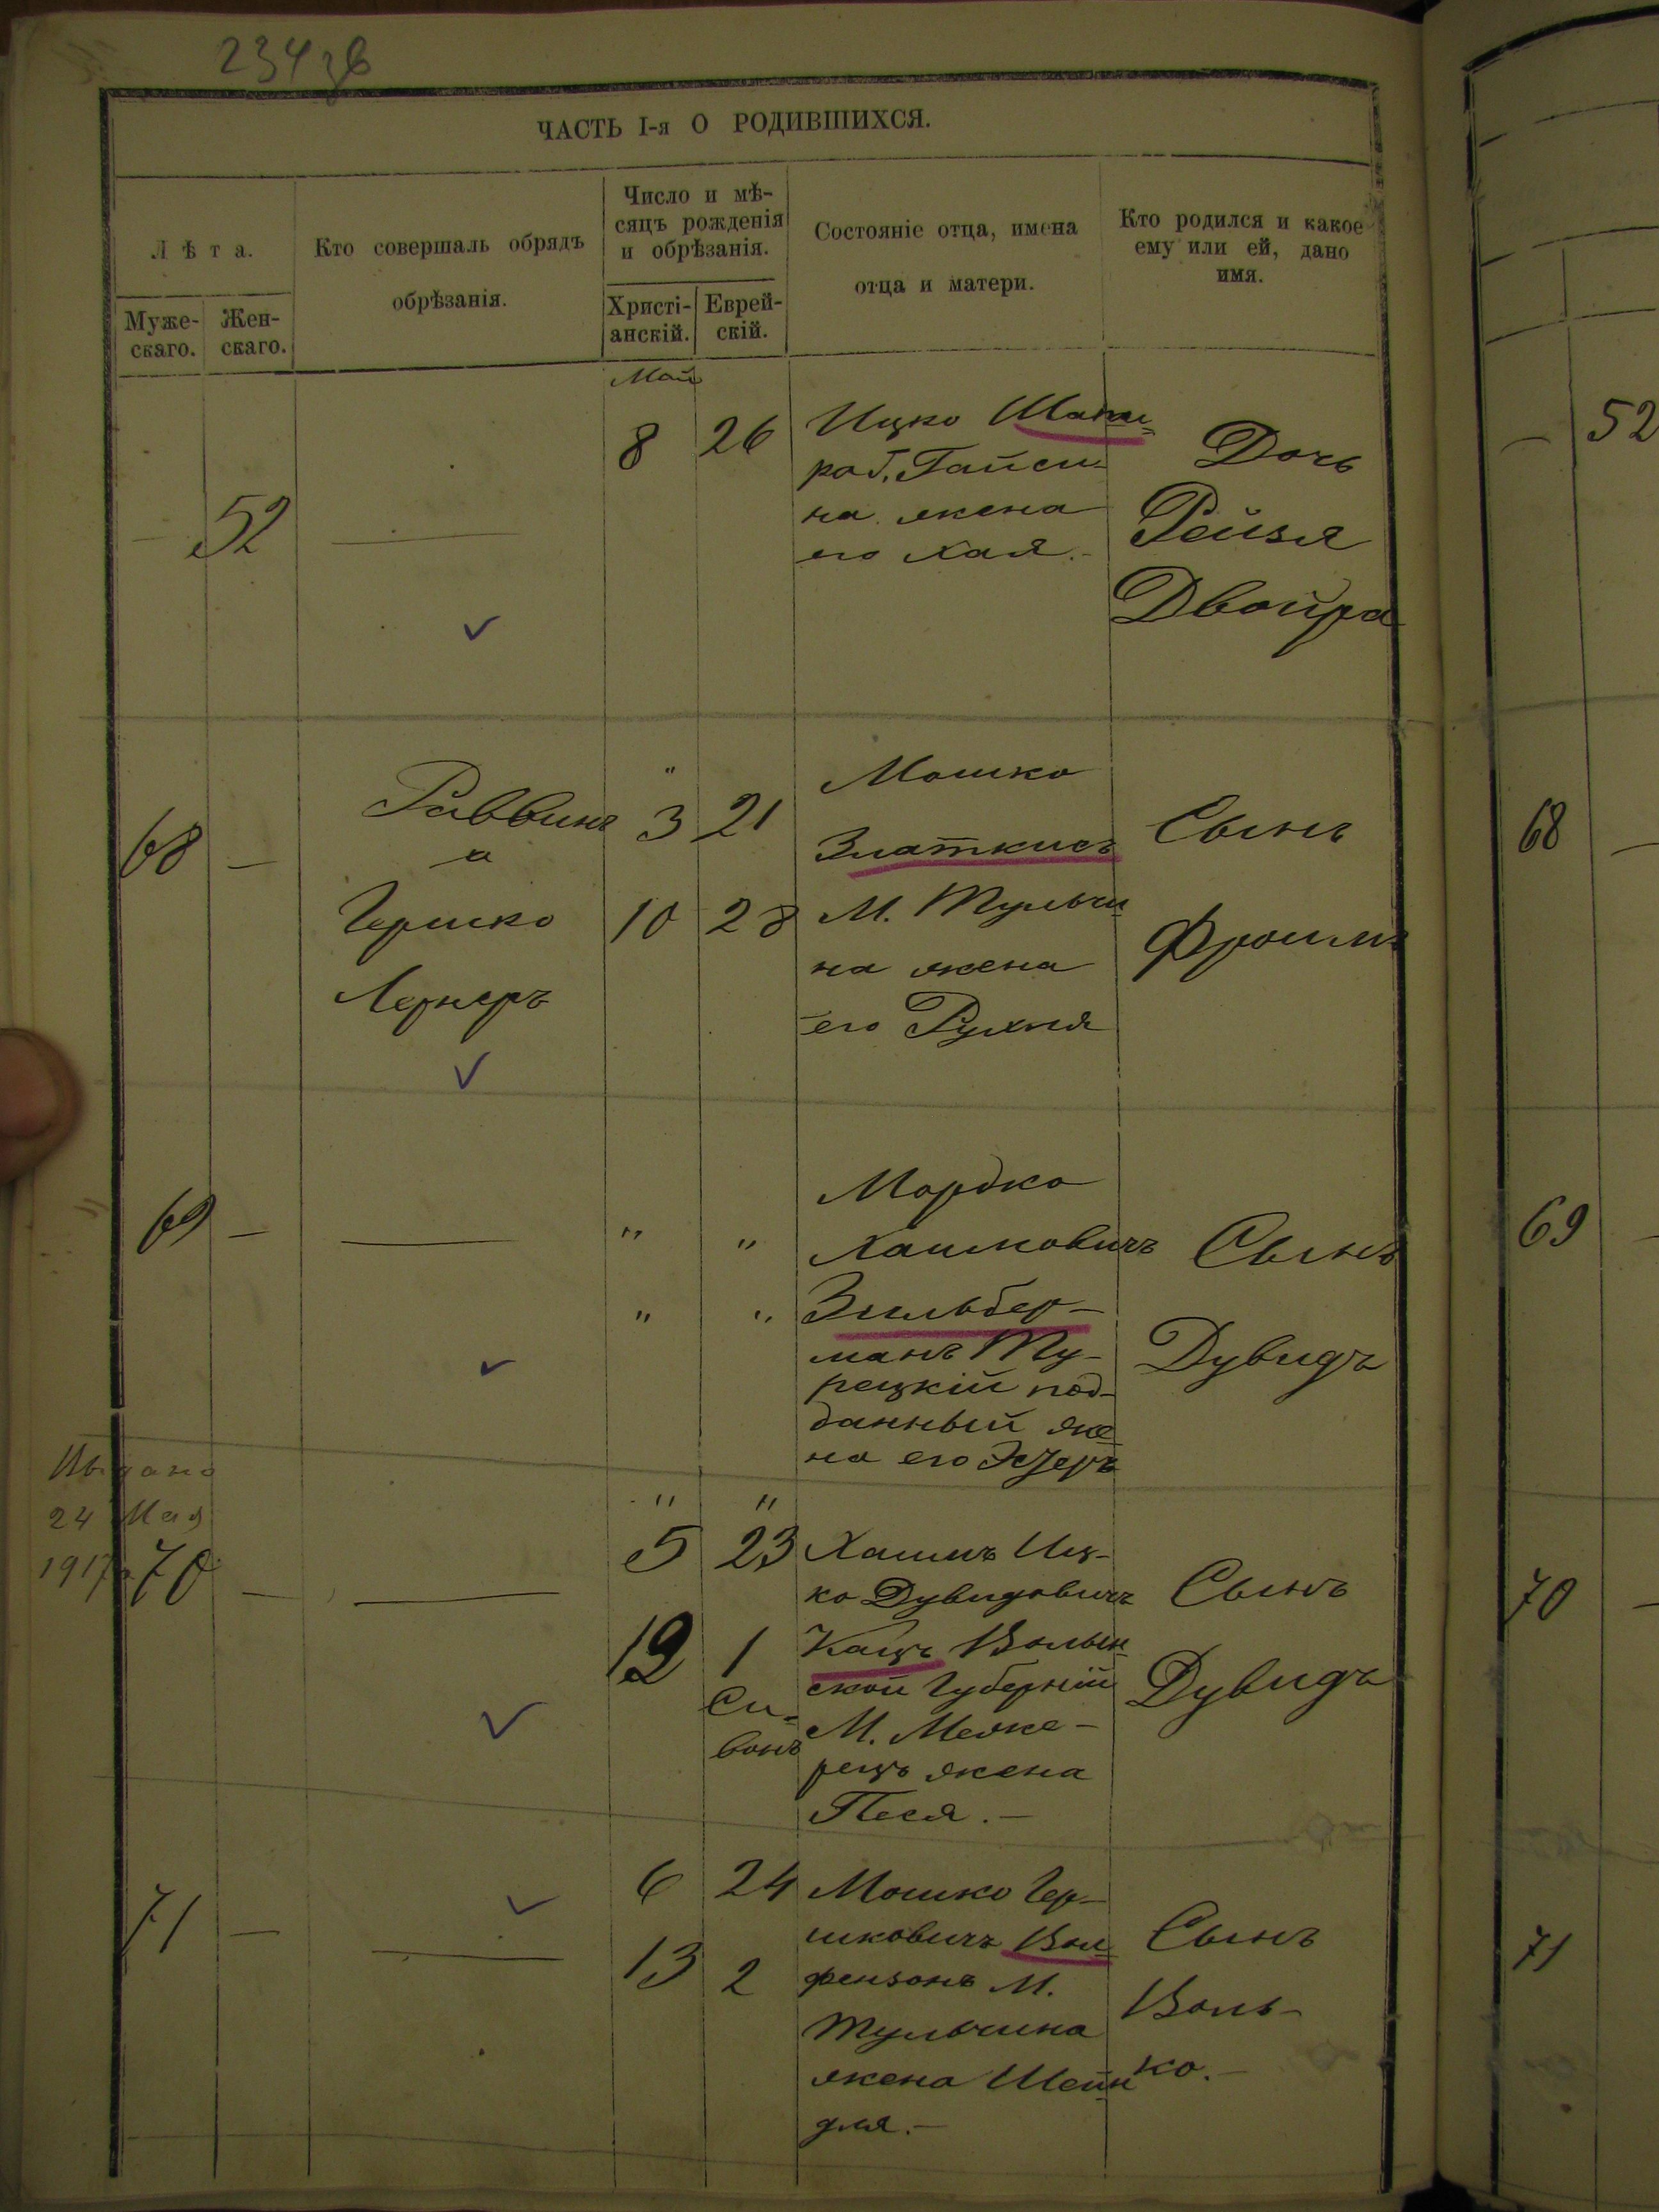 234 зв
ЧАСТЬ I-я О РОДИВШИХСЯ.
Лѣта.
Муже-
скаго.
Жен-
скаго.
Кто совершалъ обрядъ
обрѣзанія.
Число и мѣ-
сяцъ рожденія
и обрѣзанія.
Христі-
анскій.
Еврей-
скій.
Состояніе отца, имена
отца и матери.
Кто родился и какое
ему или ей, дано
имя.
Май
— 52
—
8 26
Ицко Шапи=
ро Г. Гайси=
на жена
его Хая.-
Дочь
Рейзя
Двойра
68 —
Раввинъ
а
Гершко
Лернеръ
" 3 21
10 28
Мошко
Златкисъ
М. Тульчи
на жена
его Рухля
Сынъ
Фроимъ
69 —
—
" "
" "
Мордко
Хаимовичъ
Зильбер-
манъ Ту-
рецкій под-
данный же
на его Эстеръ
Сынъ
Дувидъ
Выдано
24 Мая
1917 г.
70 —
—
" "
5 23
12 1
Си-
ванъ
Хаимъ Иц-
ко Дувидовичъ
Кацъ Волын
ской Губерніи
М. Меже-
рецъ жена
Песя.-
Сынъ
Дувидъ
71 —
—
6 24
13 2
Мошко Гер-
шковичъ Вол=
фензонъ М.
Тульчина
жена Шейн
для.-
Сынъ
Воль-
ко.-
— 52
68 —
69 —
70 —
71